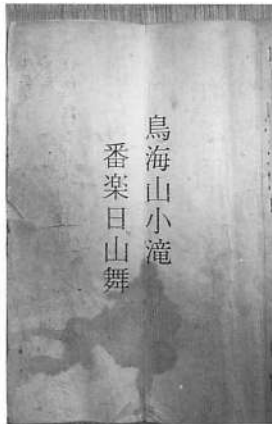 鳥海山小滝
番楽日山舞